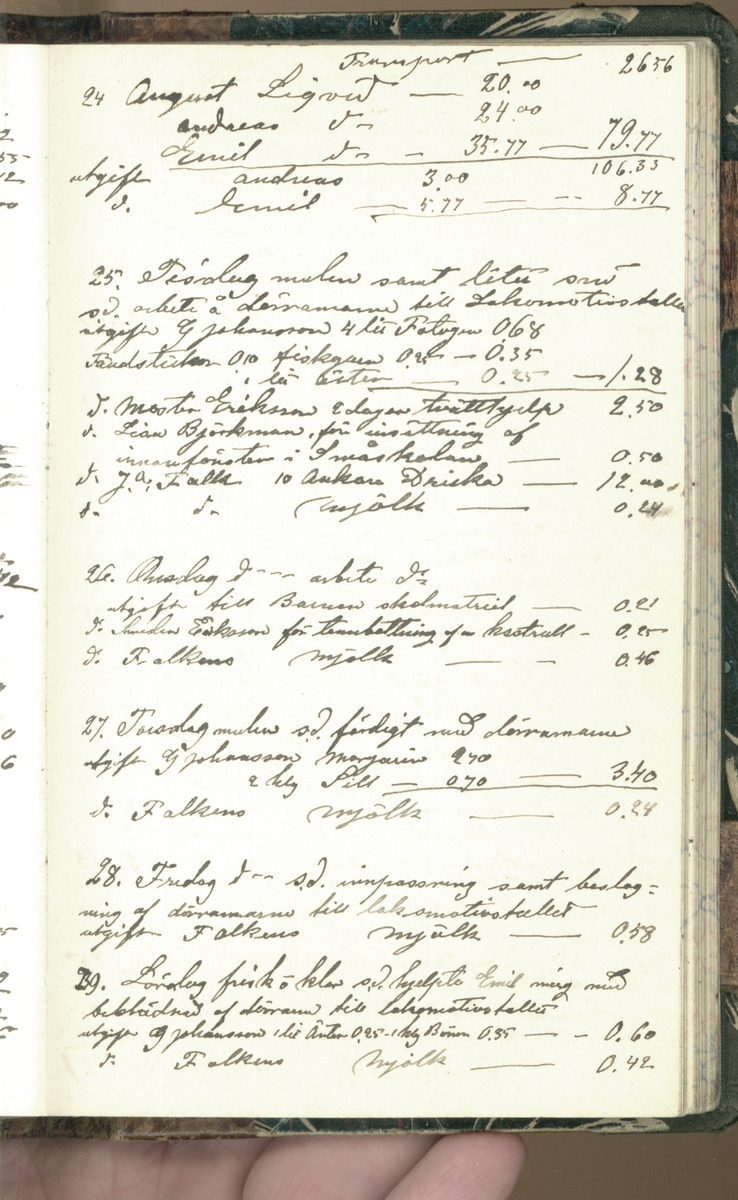 Transport — 2656
24 August Liqvid — 20.00
andreas d— 24.00
Emil d— – 35.77 — 79.77
106.33
utgift andreas 3.00
d. Emil — 5.77 — -- 8.77
25. Tisdag mulen samt litet snö
s.d. arbete å dörramarne till Lokomotivstallet
utgift G Johansson 4 lit Fotogen 068
Tändstickor 0.10 fiskgarn 0.25 — 0.35
1 lit ärter — 0.25 — 1.28
d. Moster Eriksson 2 dagar tvätthjelp 2.50
d. Björkman, för insettning af
innanfönster i Småskolan — 0.50
d. J.A. Falk 10 Ankare Dricka — 12.00
d. d— Mjölk — 0.24
26. Onsdag d--- arbete d—
utgift till Barnen skolmatriel — 0.21
d. Smeden Eriksson för af en kastrull – 0.25
d. Falkens Mjölk — – 0.46
27. Torsdag mulen s.d. färdigt med dörramarne
utgift G Johansson Margarin 270
2 klg Sill — 070 — 3.40
d. Falkens Mjölk — 0.24
28. Fredag d-- s.d. innpassning samt beslag=
ning af dörramarne till lokomotivstallet
utgift Falkens Mjölk — 0.58
29. Lördag frisk o klar s.d. hjelpte Emil mig med
beklädnad af dörrarne till lokomotivstallet
utgift G Johansson 1 lit Ärter 0.25 - 1 klg Bönor 0.35 — – 0.60
d— Falkens Mjölk — 0.42